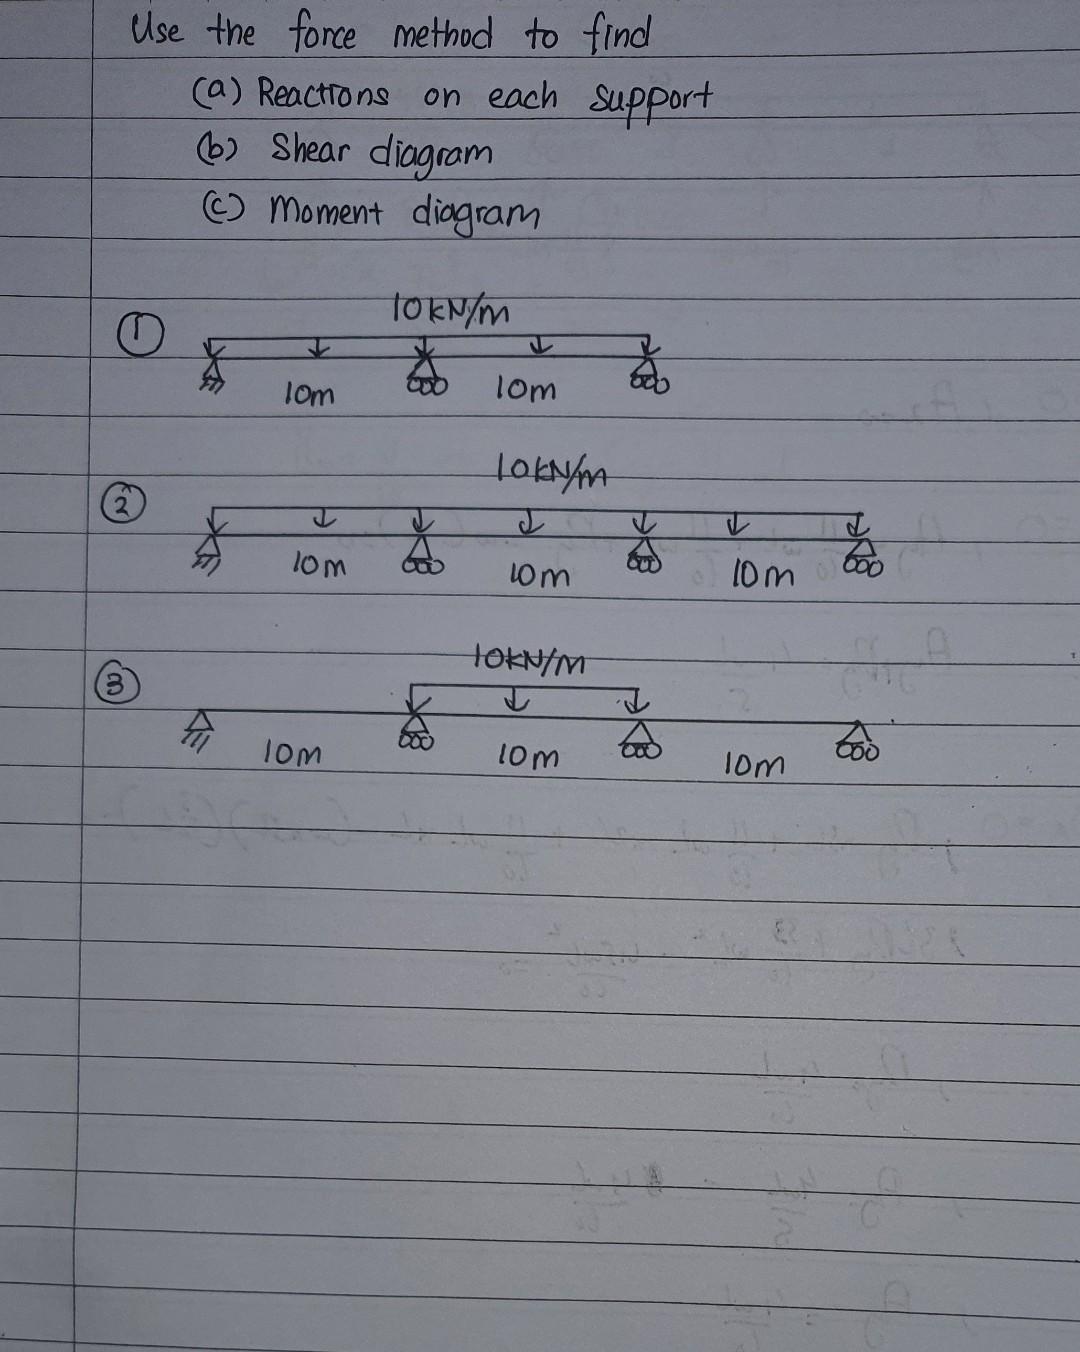 Use the force method to find
(a) Reactions on each support
(b) Shear diagram
(c) Moment diagram
① 10kN/m
10m 10m
② 10kN/m
10m 10m 10m
③ 10kN/m
10m 10m 10m